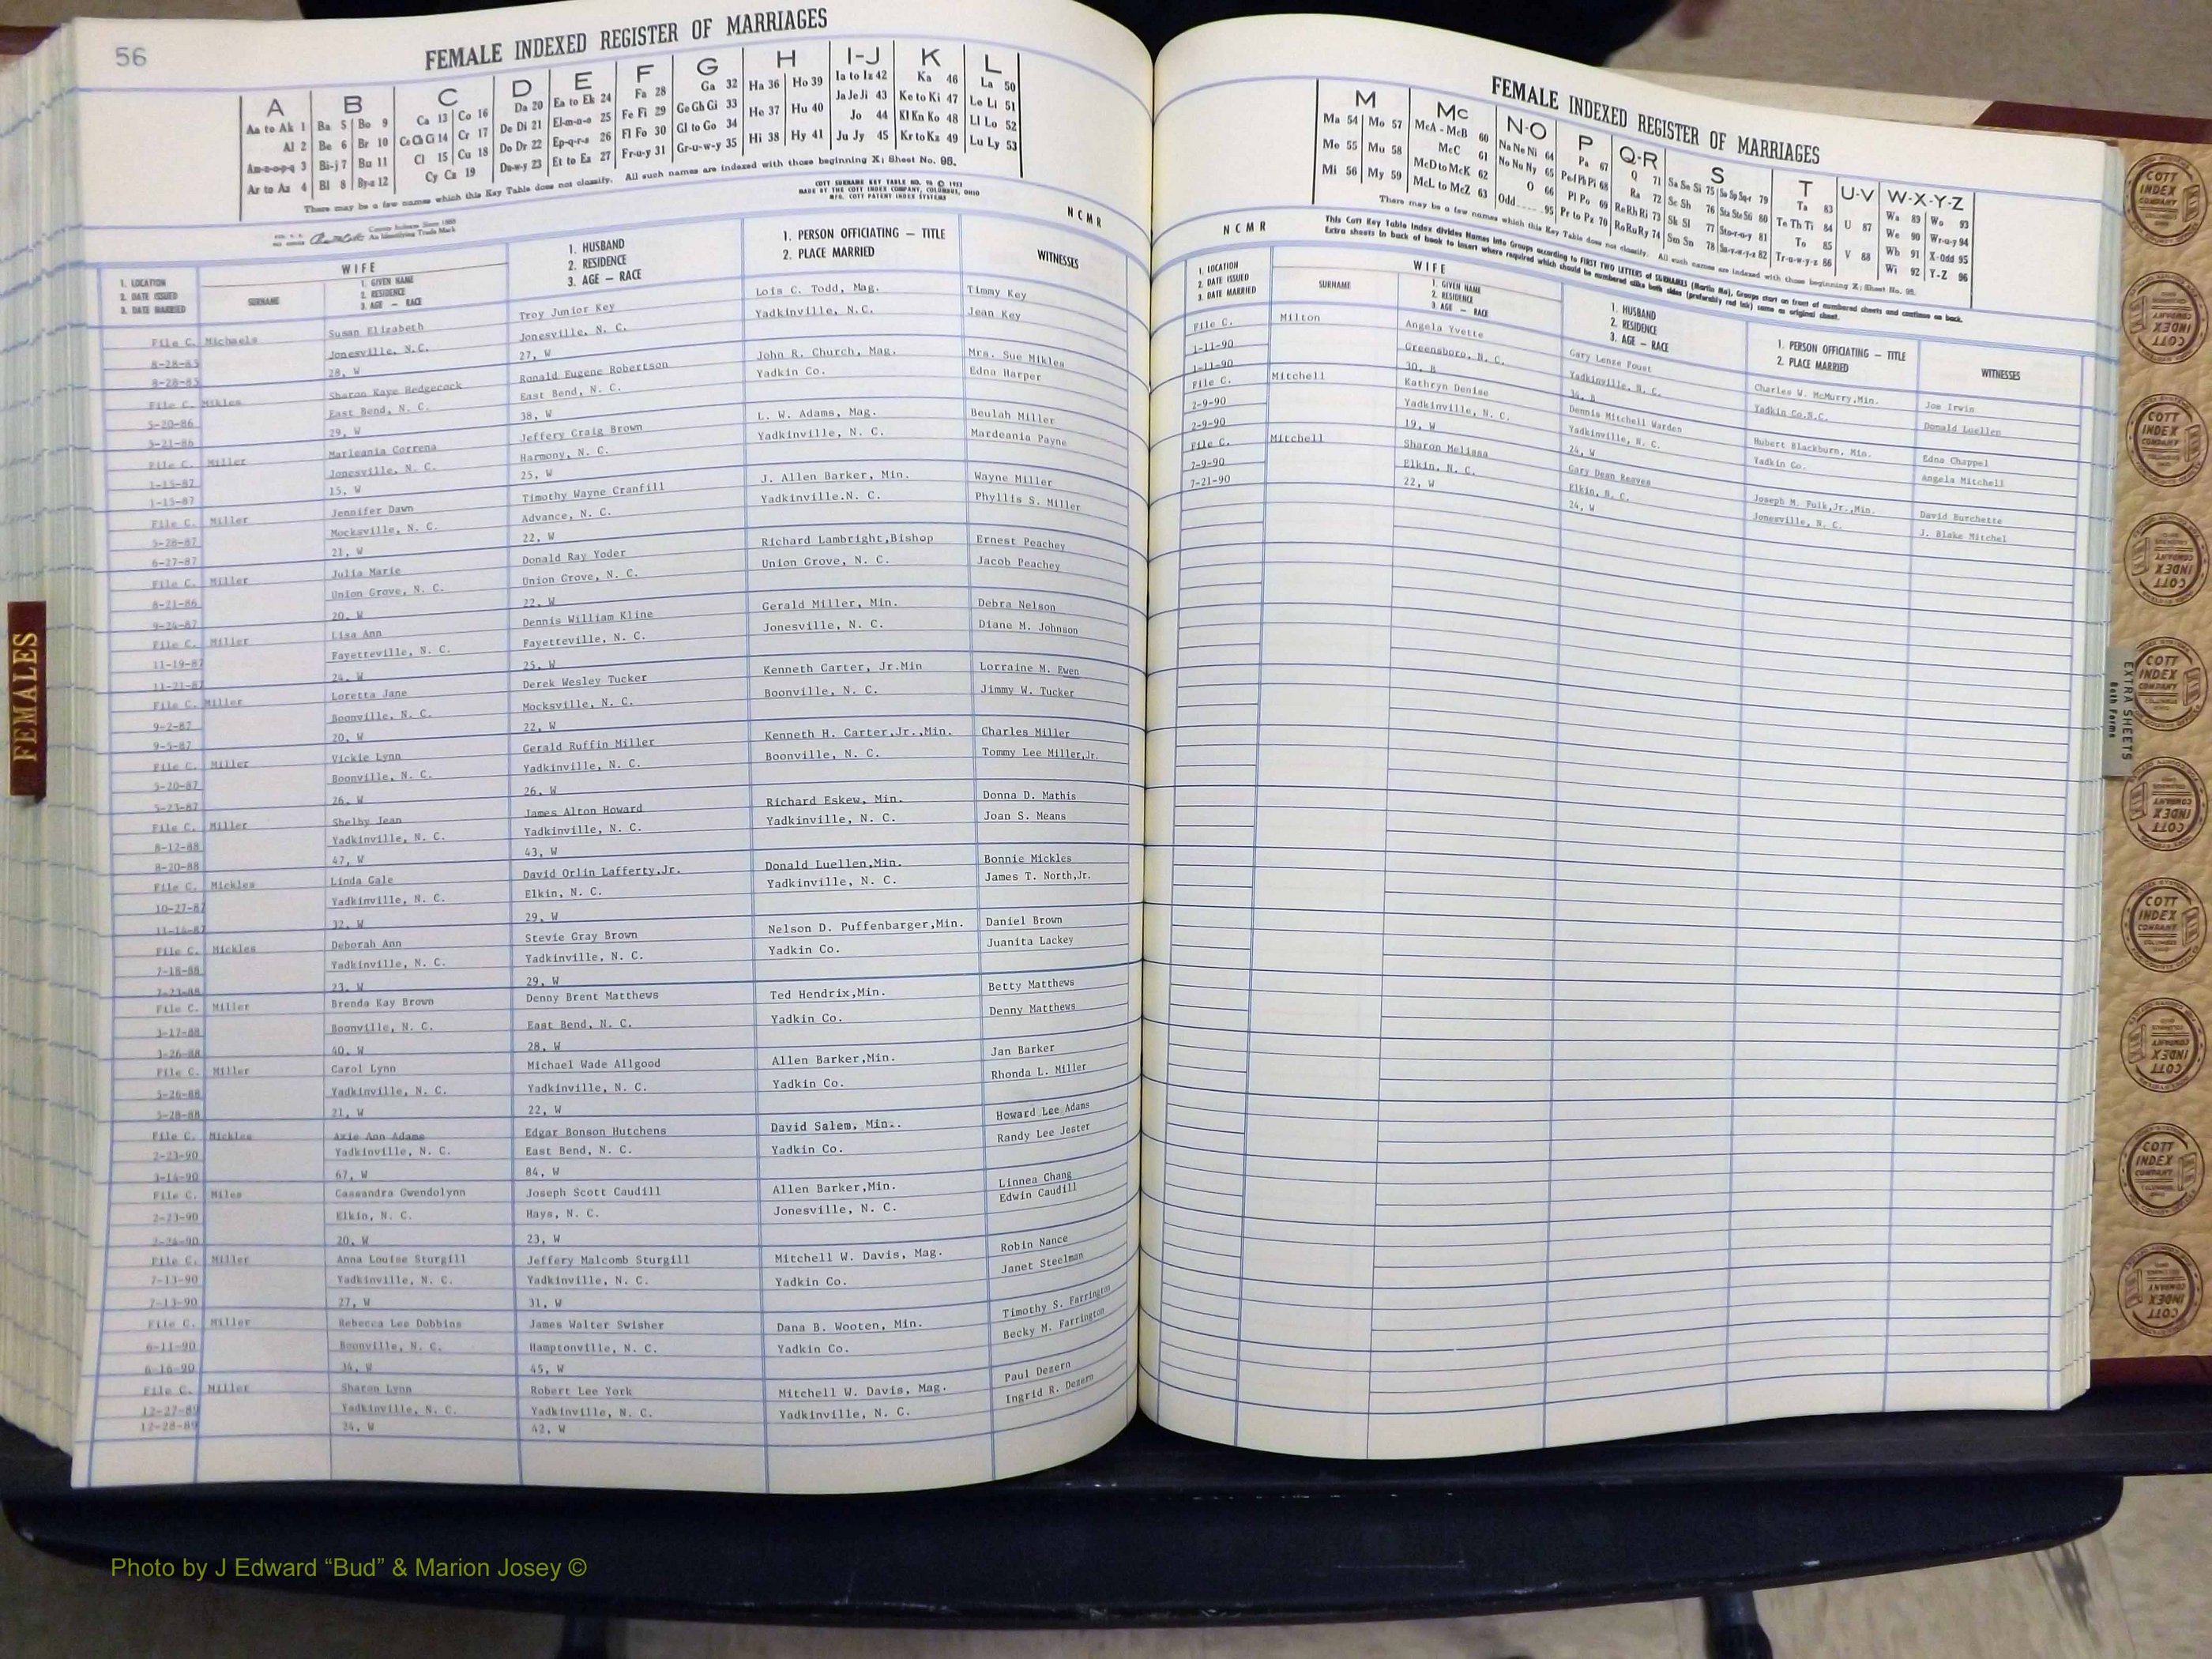 56
FEMALE INDEXED REGISTER OF MARRIAGES
A B C D E F G H I-J K L
Aa to Ak 1 Ba 5 Bo 9 Ca 13 Co 16 Da 20 Ea to Ek 24 Fa 28 Ga 32 Ha 36 Ho 39 Ia to Iz 42 Ka 46 La 50
Al 2 Be 6 Br 10 Ce Ch Ci 14 Cr 17 De Di 21 El-m-n-o 25 Fe Fi 29 Ge Gh Gi 33 He 37 Hu 40 Ja Je Ji 43 Ke to Ki 47 Le Li 51
Am-n-o-p-q 3 Bi-j 7 Bu 11 Cl 15 Cu 18 Do Dr 22 Ep-q-r-s 26 Fl Fo 30 Gl to Go 34 Hi 38 Hy 41 Jo 44 Kl Kn Ko 48 Ll Lo 52
Ar to Az 4 Bl 8 By-z 12 Cy Cz 19 Du-w-y 23 Et to Ez 27 Fr-u-y 31 Gr-u-w-y 35 Ju Jy 45 Kr to Kz 49 Lu Ly 53
There may be a few names which this Key Table does not classify. All such names are indexed with those beginning X; Sheet No. 98.
NCMR
1. LOCATION
2. DATE ISSUED
3. DATE MARRIED
WIFE
SURNAME
1. GIVEN NAME
2. RESIDENCE
3. AGE — RACE
1. HUSBAND
2. RESIDENCE
3. AGE — RACE
1. PERSON OFFICIATING — TITLE
2. PLACE MARRIED
WITNESSES
File C. Michaels Susan Elizabeth Troy Junior Key Lois C. Todd, Mag. Timmy Key
8-28-85 Jonesville, N.C. Jonesville, N. C. Yadkinville, N.C. Jean Key
8-28-85 28, W 27, W
File C. Mikles Sharon Kaye Hedgecock Ronald Eugene Robertson John R. Church, Mag. Mrs. Sue Mikles
5-20-86 East Bend, N. C. East Bend, N. C. Yadkin Co. Edna Harper
5-21-86 29, W 38, W
File C. Miller Marleania Correna Jeffery Craig Brown L. W. Adams, Mag. Beulah Miller
1-15-87 Jonesville, N. C. Harmony, N. C. Yadkinville, N. C. Mardeania Payne
1-15-87 15, W 25, W
File C. Miller Jennifer Dawn Timothy Wayne Cranfill J. Allen Barker, Min. Wayne Miller
5-28-87 Mocksville, N. C. Advance, N. C. Yadkinville.N. C. Phyllis S. Miller
6-27-87 21, W 22, W
File C. Miller Julia Marie Donald Ray Yoder Richard Lambright,Bishop Ernest Peachey
8-21-86 Union Grove, N. C. Union Grove, N. C. Union Grove, N. C. Jacob Peachey
9-24-87 20, W 22, W
File C. Miller Lisa Ann Dennis William Kline Gerald Miller, Min. Debra Nelson
11-19-87 Fayetteville, N. C. Fayetteville, N. C. Jonesville, N. C. Diane M. Johnson
11-21-87 24, W 25, W
File C. Miller Loretta Jane Derek Wesley Tucker Kenneth Carter, Jr.Min Lorraine M. Ewen
9-2-87 Boonville, N. C. Mocksville, N. C. Boonville, N. C. Jimmy W. Tucker
9-5-87 20, W 22, W
File C. Miller Vickie Lynn Gerald Ruffin Miller Kenneth H. Carter,Jr.,Min. Charles Miller
5-20-87 Boonville, N. C. Yadkinville, N. C. Boonville, N. C. Tommy Lee Miller,Jr.
5-23-87 26, W 26, W
File C. Miller Shelby Jean James Alton Howard Richard Eskew, Min. Donna D. Mathis
8-12-88 Yadkinville, N. C. Yadkinville, N. C. Yadkinville, N. C. Joan S. Means
8-20-88 47, W 43, W
File C. Mickles Linda Gale David Orlin Lafferty,Jr. Donald Luellen,Min. Bonnie Mickles
10-27-87 Yadkinville, N. C. Elkin, N. C. Yadkinville, N. C. James T. North,Jr.
11-14-87 32, W 29, W
File C. Mickles Deborah Ann Stevie Gray Brown Nelson D. Puffenbarger,Min. Daniel Brown
7-18-88 Yadkinville, N. C. Yadkinville, N. C. Yadkin Co. Juanita Lackey
7-23-88 23, W 29, W
File C. Miller Brenda Kay Brown Denny Brent Matthews Ted Hendrix,Min. Betty Matthews
3-17-88 Boonville, N. C. East Bend, N. C. Yadkin Co. Denny Matthews
3-26-88 40, W 28, W
File C. Miller Carol Lynn Michael Wade Allgood Allen Barker,Min. Jan Barker
5-26-88 Yadkinville, N. C. Yadkinville, N. C. Yadkin Co. Rhonda L. Miller
5-28-88 21, W 22, W
File C. Mickles Axie Ann Adams Edgar Bonson Hutchens David Salem, Min. Howard Lee Adams
2-23-90 Yadkinville, N. C. East Bend, N. C. Yadkin Co. Randy Lee Jester
3-14-90 67, W 84, W
File C. Miles Cassandra Gwendolynn Joseph Scott Caudill Allen Barker,Min. Linnea Chang
2-23-90 Elkin, N. C. Hays, N. C. Jonesville, N. C. Edwin Caudill
2-24-90 20, W 23, W
File C. Miller Anna Louise Sturgill Jeffery Malcomb Sturgill Mitchell W. Davis, Mag. Robin Nance
7-13-90 Yadkinville, N. C. Yadkinville, N. C. Yadkin Co. Janet Steelman
7-13-90 27, W 31, W
File C. Miller Rebecca Lee Dobbins James Walter Swisher Dana B. Wooten, Min. Timothy S. Farrington
6-11-90 Boonville, N. C. Hamptonville, N. C. Yadkin Co. Becky M. Farrington
6-16-90 34, W 45, W
File C. Miller Sharon Lynn Robert Lee York Mitchell W. Davis, Mag. Paul Dezern
12-27-89 Yadkinville, N. C. Yadkinville, N. C. Yadkinville, N. C. Ingrid R. Dezern
12-28-89 24, W 42, W
FEMALES
FEMALE INDEXED REGISTER OF MARRIAGES
M Mc N-O P Q-R S T U-V W-X-Y-Z
Ma 54 Mo 57 McA - McB 60 Na Ne Ni 64 Pa 67 Q 71 Sa Se Si 75 So Sp Sq-r 79 Ta 83 U 87 Wa 89 Wo 93
Me 55 Mu 58 McC 61 No Nu Ny 65 Pe-f Ph Pi 68 Ra 72 Sc Sh 76 Sta Ste Sti 80 Te Th Ti 84 V 88 We 90 Wr-u-y 94
Mi 56 My 59 McD to McK 62 O 66 Pl Po 69 Re Rh Ri 73 Sk Sl 77 Sto-r-u-y 81 To 85 Wh 91 X-Odd 95
McL to McZ 63 Odd 95 Pr to Pz 70 Ro Ru Ry 74 Sm Sn 78 Su-v-w-y-z 82 Tr-u-w-y-z 86 Wi 92 Y-Z 96
There may be a few names which this Key Table does not classify. All such names are indexed with those beginning X; Sheet No. 98.
NCMR
This Cott Key Table Index divides Names into Groups according to FIRST TWO LETTERS of SURNAMES (Martin Ma), Groups start on front of numbered sheets and continue on back.
Extra sheets in back of book to insert where required which should be numbered alike both sides (preferably red ink) same as original sheet.
1. LOCATION
2. DATE ISSUED
3. DATE MARRIED
WIFE
SURNAME
1. GIVEN NAME
2. RESIDENCE
3. AGE — RACE
1. HUSBAND
2. RESIDENCE
3. AGE — RACE
1. PERSON OFFICIATING — TITLE
2. PLACE MARRIED
WITNESSES
File C. Milton Angela Yvette Gary Lense Foust Charles W. McMurry,Min. Joe Irwin
1-11-90 Greensboro, N. C. Yadkinville, N. C. Yadkin Co.N.C. Donald Luellen
1-11-90 30, B 34, B
File C. Mitchell Kathryn Denise Dennis Mitchell Warden Hubert Blackburn, Min. Edna Chappel
2-9-90 Yadkinville, N. C. Yadkinville, N. C. Yadkin Co. Angela Mitchell
2-9-90 19, W 24, W
File C. Mitchell Sharon Melissa Gary Dean Reaves Joseph M. Fulk,Jr.,Min. David Burchette
7-9-90 Elkin, N. C. Elkin, N. C. Jonesville, N. C. J. Blake Mitchel
7-21-90 22, W 24, W
EXTRA SHEETS
Both Forms
COTT INDEX COMPANY
Photo by J Edward “Bud” & Marion Josey ©